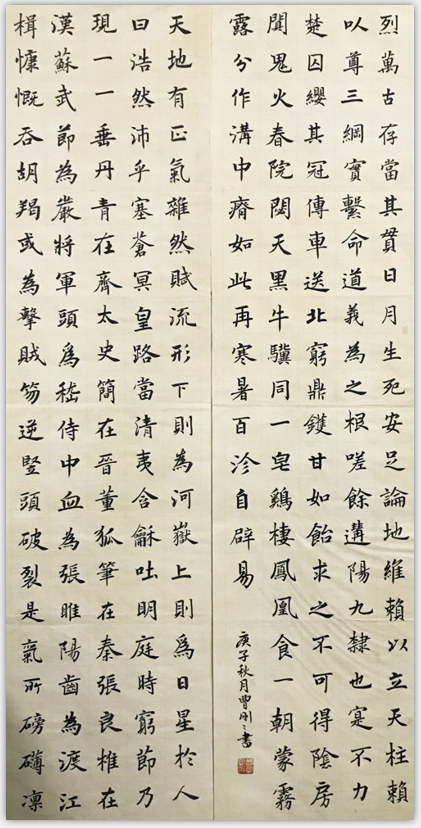 天地有正氣雜然賦流形下則為河嶽上則爲日星於人
曰浩然沛乎塞蒼冥皇路當清夷含龢吐明庭時窮節乃
現一一垂丹青在齊太史簡在晉董狐筆在秦張良椎在
漢蘇武節為嚴將軍頭爲嵇侍中血為張睢陽齒為渡江
楫慷慨吞胡羯或為擊賊笏逆豎頭破裂是氣所磅礴凜
烈萬古存當其貫日月生死安足論地維賴以立天柱賴
以尊三綱實繫命道義為之根嗟餘遘陽九隸也寔不力
楚囚纓其冠傳車送北窮鼎鑊甘如飴求之不可得陰房
闃鬼火春院閟天黑牛驥同一皂鷄棲鳳凰食一朝蒙霧
露分作溝中瘠如此再寒暑百沴自辟易
庚子秋月曹刚〻書